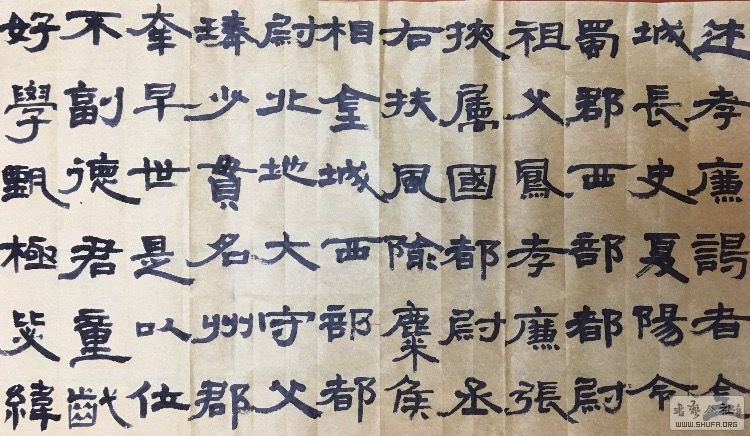 述孝廉謁者金
城長史夏陽令
蜀郡西部都尉
祖父鳳孝廉張
掖屬國都尉丞
右扶風隃麋侯
相金城西部都
尉北地大守父
琫少貫名州郡
幸早世是以位
不副德君童齔
好學甄極毖緯
WWW.SHUFA.ORG